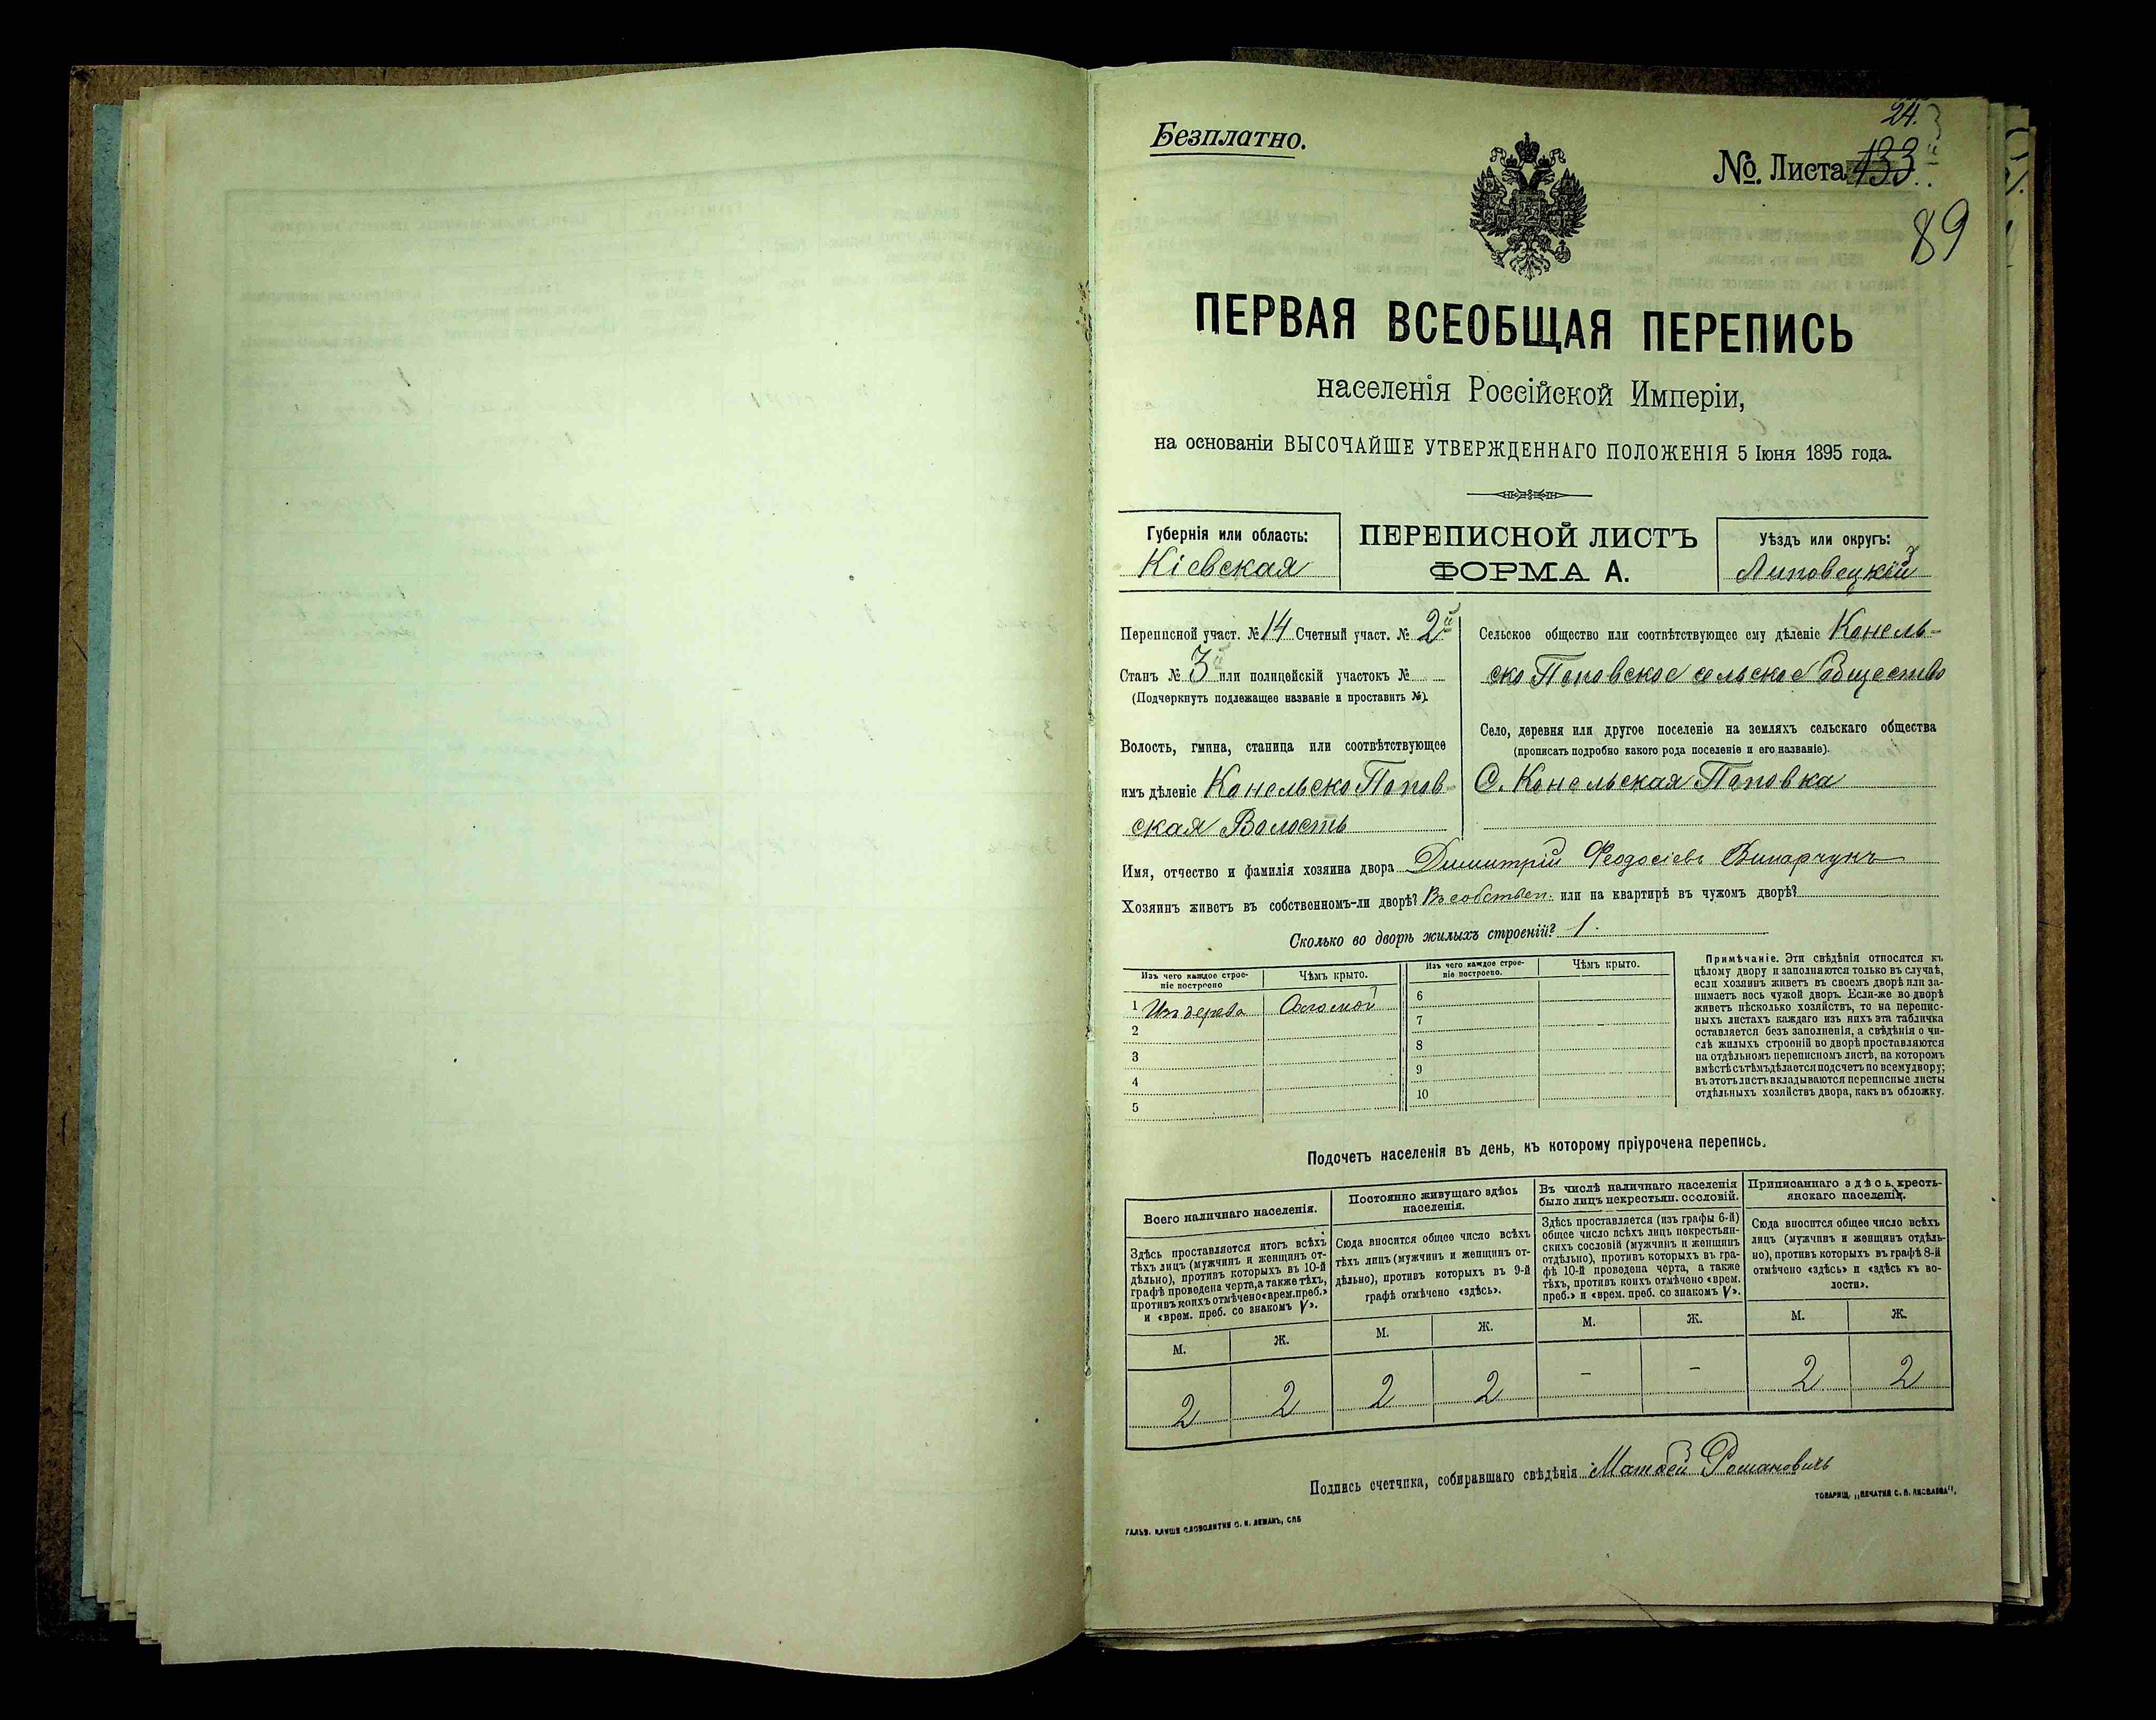 24.
Безплатно.
№ Листа 133
89
ПЕРВАЯ ВСЕОБЩАЯ ПЕРЕПИСЬ
населенія Россійской Имперіи,
на основаніи ВЫСОЧАЙШЕ УТВЕРЖДЕННАГО ПОЛОЖЕНІЯ 5 Іюня 1895 года.
Губернія или область:
Кіевская
ПЕРЕПИСНОЙ ЛИСТЪ
ФОРМА А.
Уѣздъ или округъ:
Липовецкій
Переписной участ. № 14 Счетный участ. № 2й
Станъ № 3й или полицейскій участокъ №
(Подчеркнуть подлежащее названіе и проставить №).
Волость, гмина, станица или соотвѣтствующее
имъ дѣленіе Конельско Попов-
ская Волость
Сельское общество или соотвѣтствующее ему дѣленіе Конель-
ско Поповское сельское Общество
Село, деревня или другое поселеніе на земляхъ сельскаго общества
(прописать подробно какого рода поселеніе и его названіе).
С. Конельская Поповка
Имя, отчество и фамилія хозяина двора Димитрій Феодосіевъ Винарчукъ
Хозяинъ живетъ въ собственномъ-ли дворѣ? Въ собствен. или на квартирѣ въ чужомъ дворѣ?
Сколько во дворѣ жилыхъ строеній? 1.
Изъ чего каждое строе-
ніе построено
Чѣмъ крыто.
Изъ чего каждое строе-
ніе построено.
Чѣмъ крыто.
1 Изъ дерева Соломой
2
3
4
5
6
7
8
9
10
Примѣчаніе. Эти свѣдѣнія относятся къ
цѣлому двору и заполняются только въ случаѣ,
если хозяинъ живетъ въ своемъ дворѣ или за-
нимаетъ весь чужой дворъ. Если-же во дворѣ
живетъ нѣсколько хозяйствъ, то на перепис-
ныхъ листахъ каждаго изъ нихъ эта табличка
оставляется безъ заполненія, а свѣдѣнія о чи-
слѣ жилыхъ строеній во дворѣ проставляются
на отдѣльномъ переписномъ листѣ, на которомъ
вмѣстѣ съ тѣмъ дѣлается подсчетъ по всему двору;
въ этотъ листъ вкладываются переписные листы
отдѣльныхъ хозяйствъ двора, какъ въ обложку.
Подсчетъ населенія въ день, къ которому пріурочена перепись.
Всего наличнаго населенія.
Здѣсь проставляется итогъ всѣхъ
тѣхъ лицъ (мужчинъ и женщинъ от-
дѣльно), противъ которыхъ въ 10-й
графѣ проведена черта, а также тѣхъ,
противъ коихъ отмѣчено «врем. преб.»
и «врем. преб. со знакомъ V».
Постоянно живущаго здѣсь
населенія.
Сюда вносится общее число всѣхъ
тѣхъ лицъ (мужчинъ и женщинъ от-
дѣльно), противъ которыхъ въ 9-й
графѣ отмѣчено «здѣсь».
Въ числѣ наличнаго населенія
было лицъ некрестьян. сословій.
Здѣсь проставляется (изъ графы 6-й)
общее число всѣхъ лицъ некрестьян-
скихъ сословій (мужчинъ и женщинъ
отдѣльно), противъ которыхъ въ гра-
фѣ 10-й проведена черта, а также
тѣхъ, противъ коихъ отмѣчено «врем.
преб.» и «врем. преб. со знакомъ V».
Приписаннаго здѣсь кресть-
янскаго населенія.
Сюда вносится общее число всѣхъ
лицъ (мужчинъ и женщинъ отдѣль-
но), противъ которыхъ въ графѣ 8-й
отмѣчено «здѣсь» и «здѣсь къ во-
лости».
М. Ж. М. Ж. М. Ж. М. Ж.
2 2 2 2 – – 2 2
Подпись счетчика, собиравшаго свѣдѣнія Матвей Романовичъ
ГАЛЬВ. КЛИШЕ СЛОВОЛИТНИ О. И. ЛЕМАНЪ, СПБ
ТОВАРИЩ. „ПЕЧАТНЯ С. П. ЯКОВЛЕВА“.